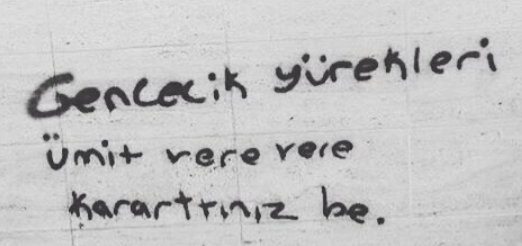 Gencecik yürekleri
ümit vere vere
kararttınız be.